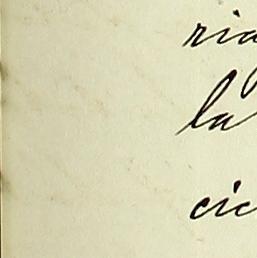 ria
la
cic